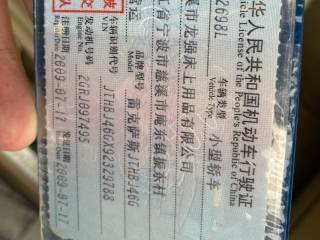 华人民共和国机动车行驶证
Vehicle License of the People's Republic of China
2098L
车辆类型 小型轿车
Vehicle Type
溪市龙强床上用品有限公司
江省宁波市慈溪市庵东镇振东村
营运
品牌型号 雷克萨斯JTHBJ46G
车辆识别代号 JTHBJ46GX92329788
VIN
发动机号码 2GRJ097495
Engine No.
注册日期 2009-07-17
Register Date
发证日期 2009-07-17
Issue Date